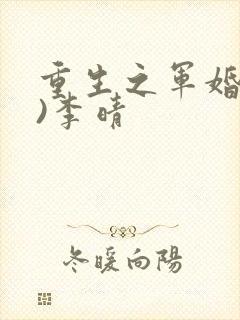 重生之军婚
)李晴
冬暖向陽